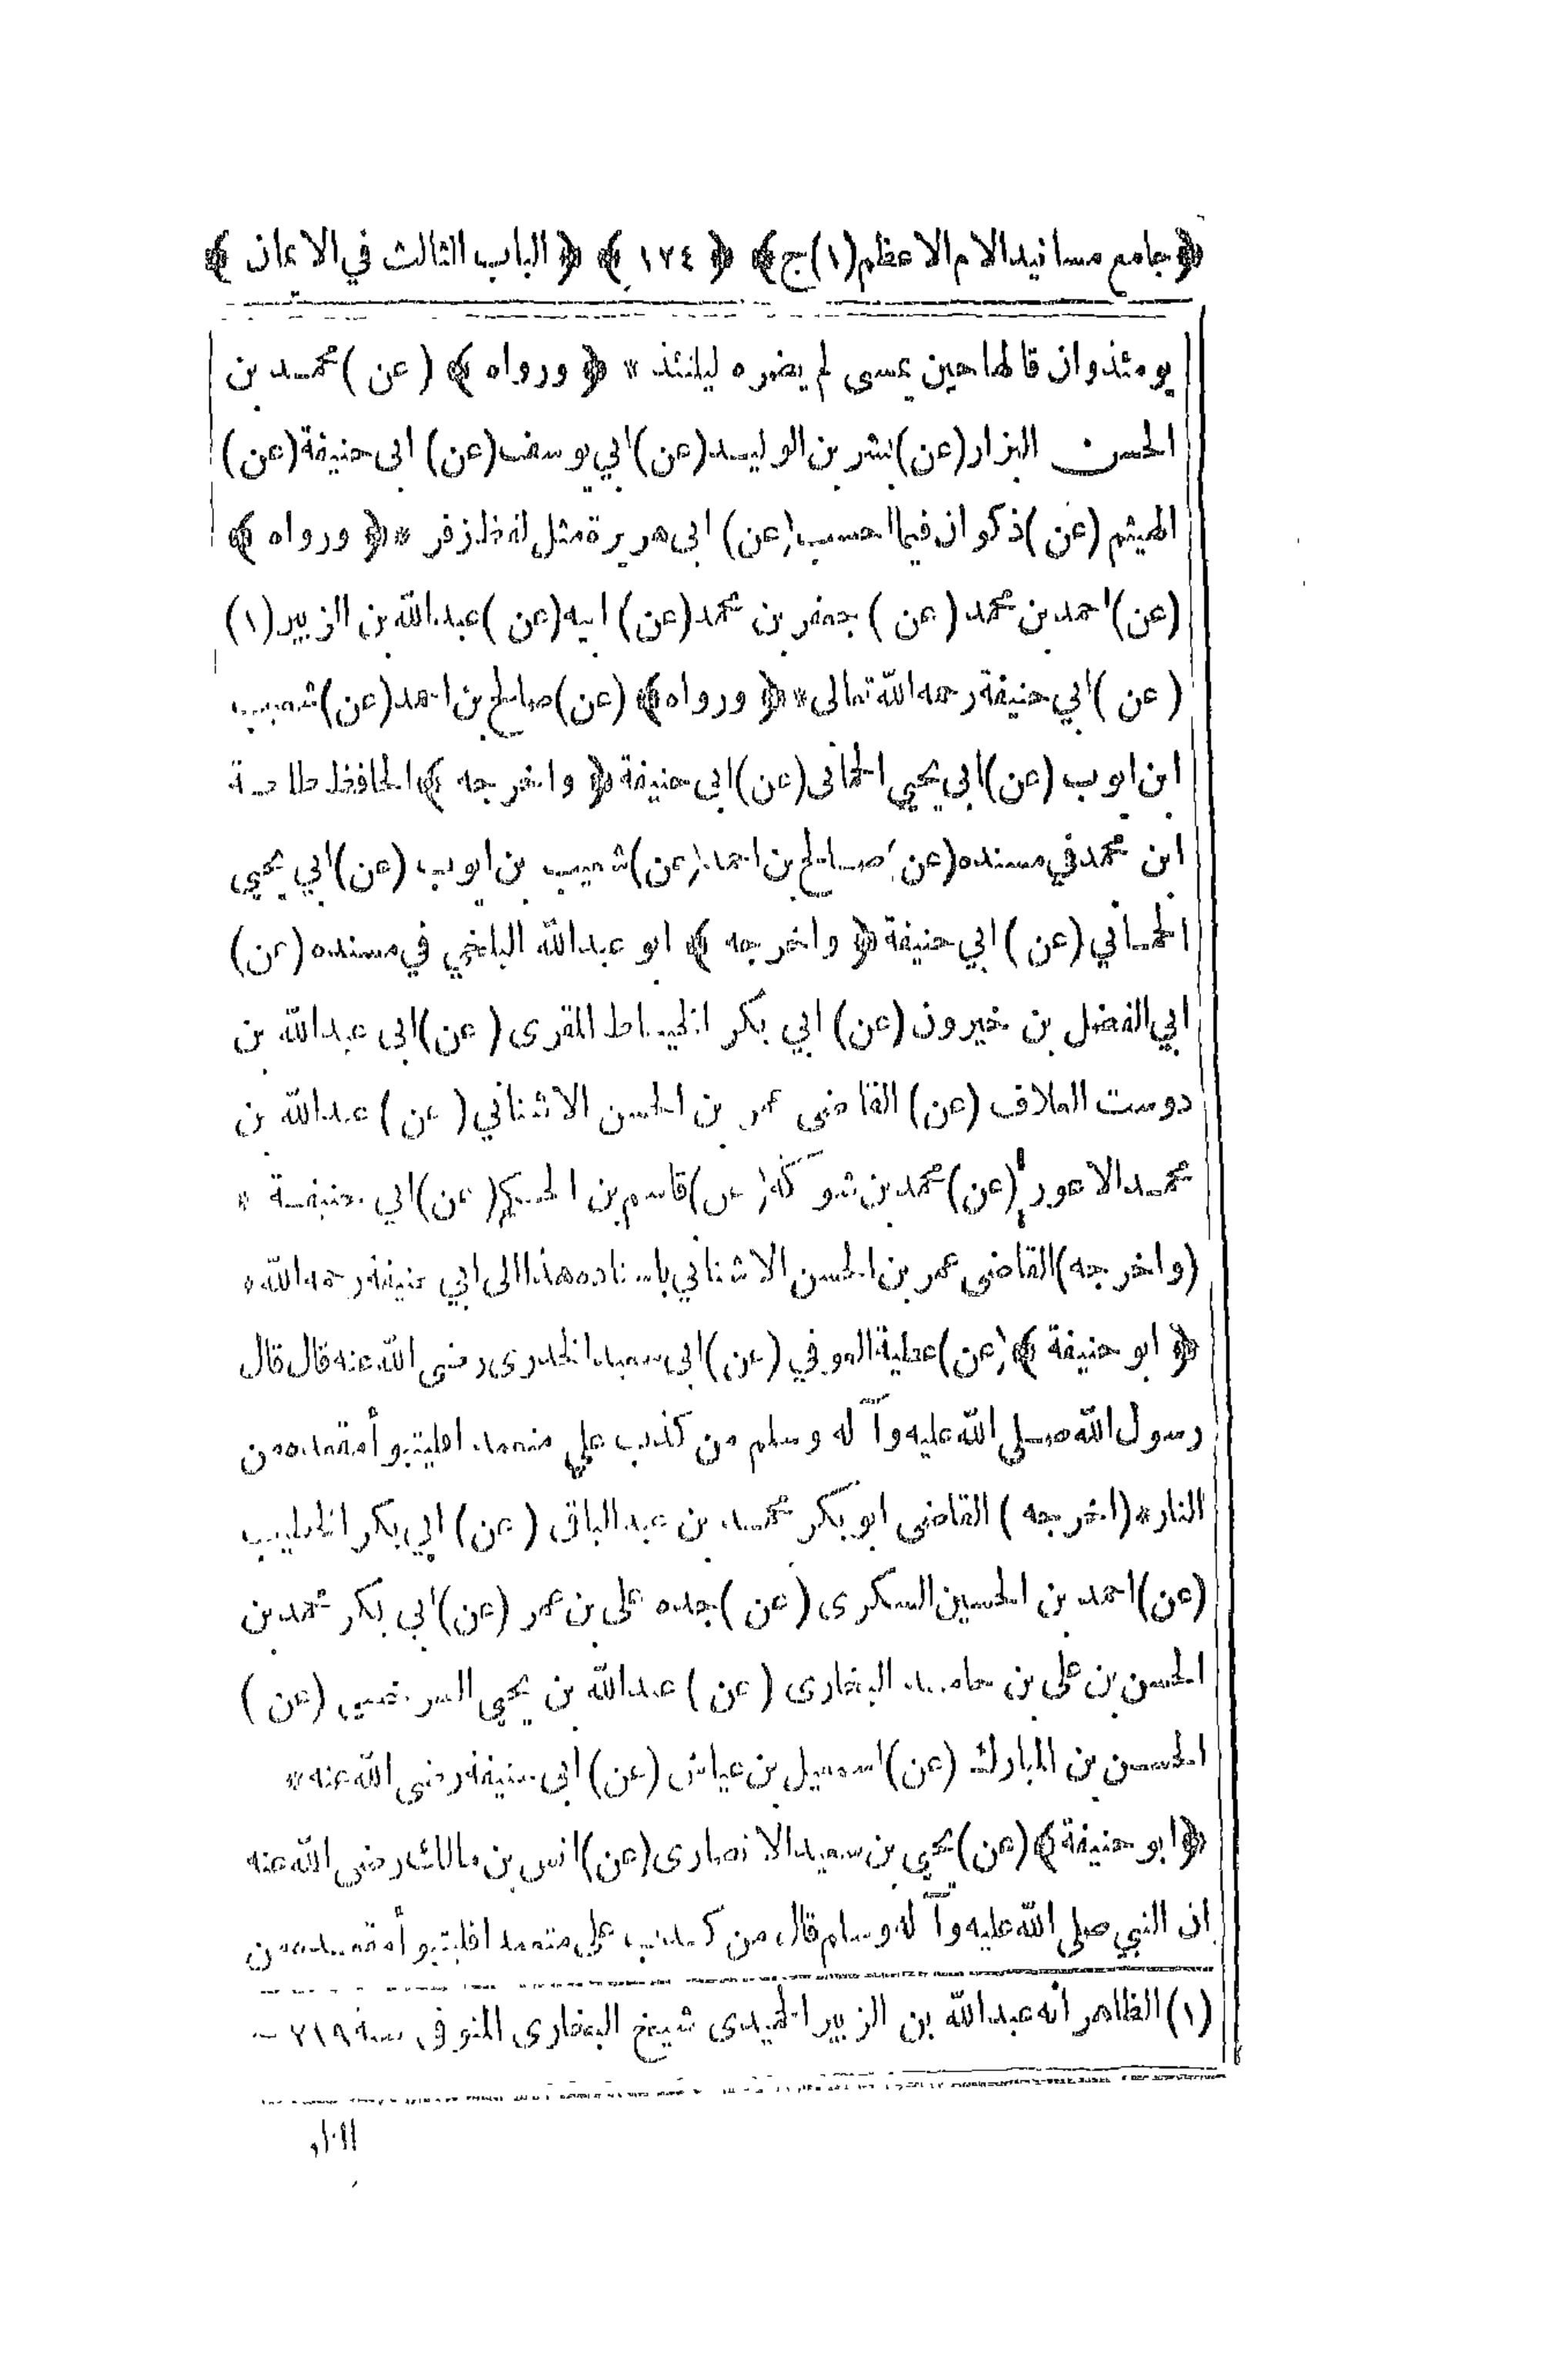 ﴿جامع مسانيد الام الاعظم(١)ج﴾ ﴿ ١٧٤ ﴾ ﴿ الباب الثالث في الايمان ﴾
يومئذ وان قالها حين يمسى لم يضره ليلتئذ * ﴿ ورواه ﴾ (عن) محمد بن
الحسن البزار (عن) بشر بن الوليد (عن) ابي يوسف (عن) ابى حنيفة (عن)
الهيثم (عن) ذكوان فيما احسب (عن) ابى هريرة مثل لفظ زفر * ﴿ ورواه ﴾
(عن) احمد بن محمد (عن) جعفر بن محمد (عن) ابيه (عن) عبد الله بن الزبير (١)
(عن) ابي حنيفة رحمه الله تعالى * ﴿ ورواه ﴾ (عن) صالح بن احمد (عن) شعيب
ابن ايوب (عن) ابى يحيى الحمانى (عن) ابى حنيفة ﴿ واخرجه ﴾ الحافظ طلحة
ابن محمد في مسنده (عن) صالح بن احمد (عن) شعيب بن ايوب (عن) ابي يحيى
الحماني (عن) ابي حنيفة ﴿ واخرجه ﴾ ابو عبد الله البلخي في مسنده (عن)
ابي الفضل بن خيرون (عن) ابي بكر الخياط المقرى (عن) ابى عبد الله بن
دوست العلاف (عن) القاضى عمر بن الحسن الاشناني (عن) عبد الله بن
محمد الاعور (عن) محمد بن شوكة (عن) قاسم بن الحكم (عن) ابي حنيفة *
(واخرجه) القاضى عمر بن الحسن الاشناني باسناده هذا الى ابي حنيفة رحمه الله *
﴿ ابو حنيفة ﴾ (عن) عطية العوفي (عن) ابى سعيد الخدرى رضى الله عنه قال قال
رسول الله صلى الله عليه وآله وسلم من كذب علي متعمدا فليتبوأ مقعده من
النار * (اخرجه) القاضى ابو بكر محمد بن عبد الباقى (عن) ابي بكر الخطيب
(عن) احمد بن الحسين السكرى (عن) جده على بن عمر (عن) ابي بكر محمد بن
الحسن بن على بن حامد البخارى (عن) عبد الله بن يحيى السرخسى (عن)
الحسن بن المبارك (عن) اسمعيل بن عياش (عن) ابى حنيفة رضى الله عنه *
﴿ ابو حنيفة ﴾ (عن) يحيى بن سعيد الانصارى (عن) انس بن مالك رضى الله عنه
ان النبي صلى الله عليه وآله وسلم قال من كذب على متعمدا فليتبوأ مقعده من
(١) الظاهر انه عبد الله بن الزبير الحميدى شيخ البخارى المتوفى سنة ٢١٩ —
النار